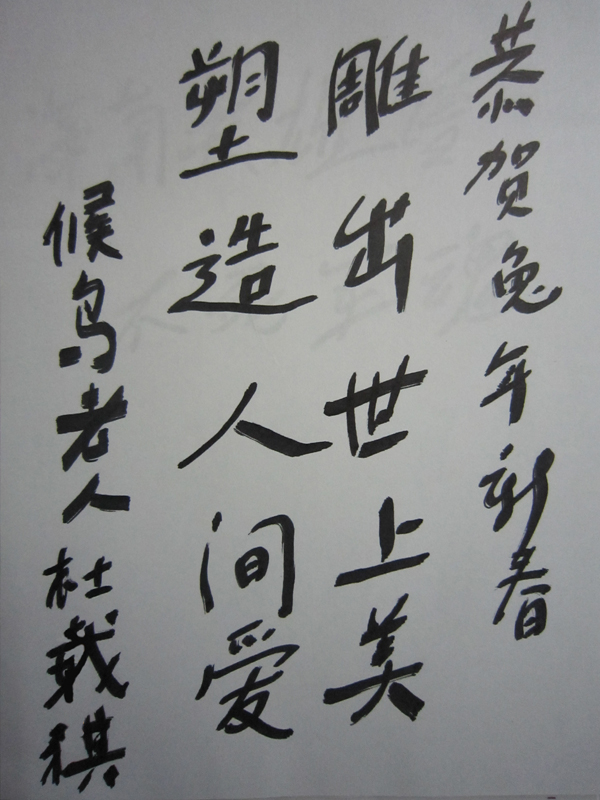 恭贺兔年新春
雕出世上美
塑造人间爱
候鸟老人杜戟稘